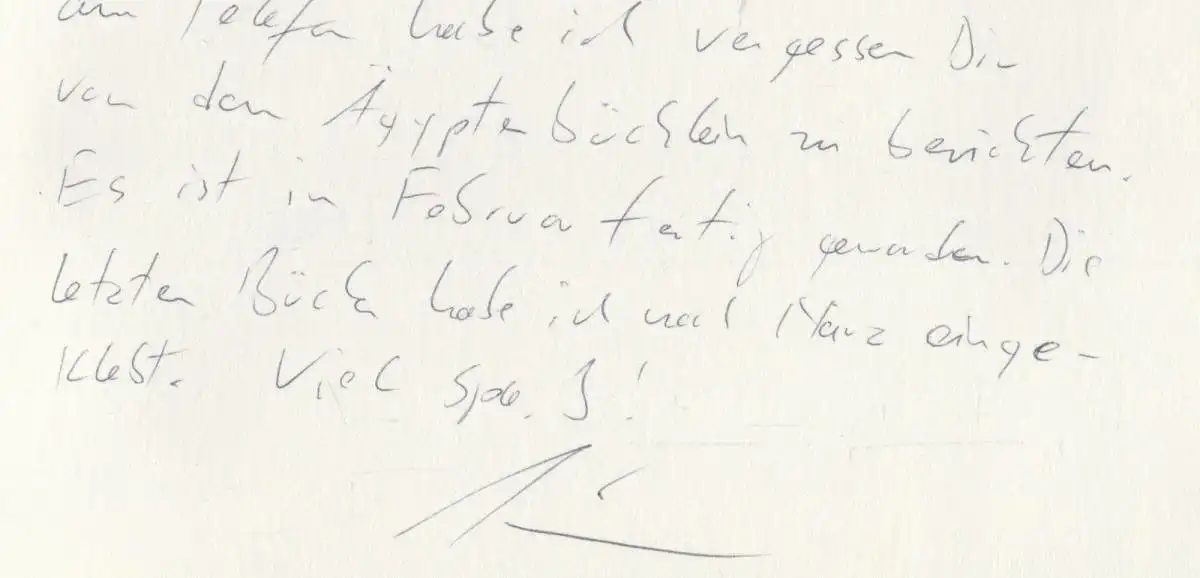 am Telefon habe ich vergessen Dir
von dem Ägyptenbüchlein zu berichten.
Es ist im Februar fertig geworden. Die
letzten Bücher habe ich nach März einge-
klebt. Viel Spaß!